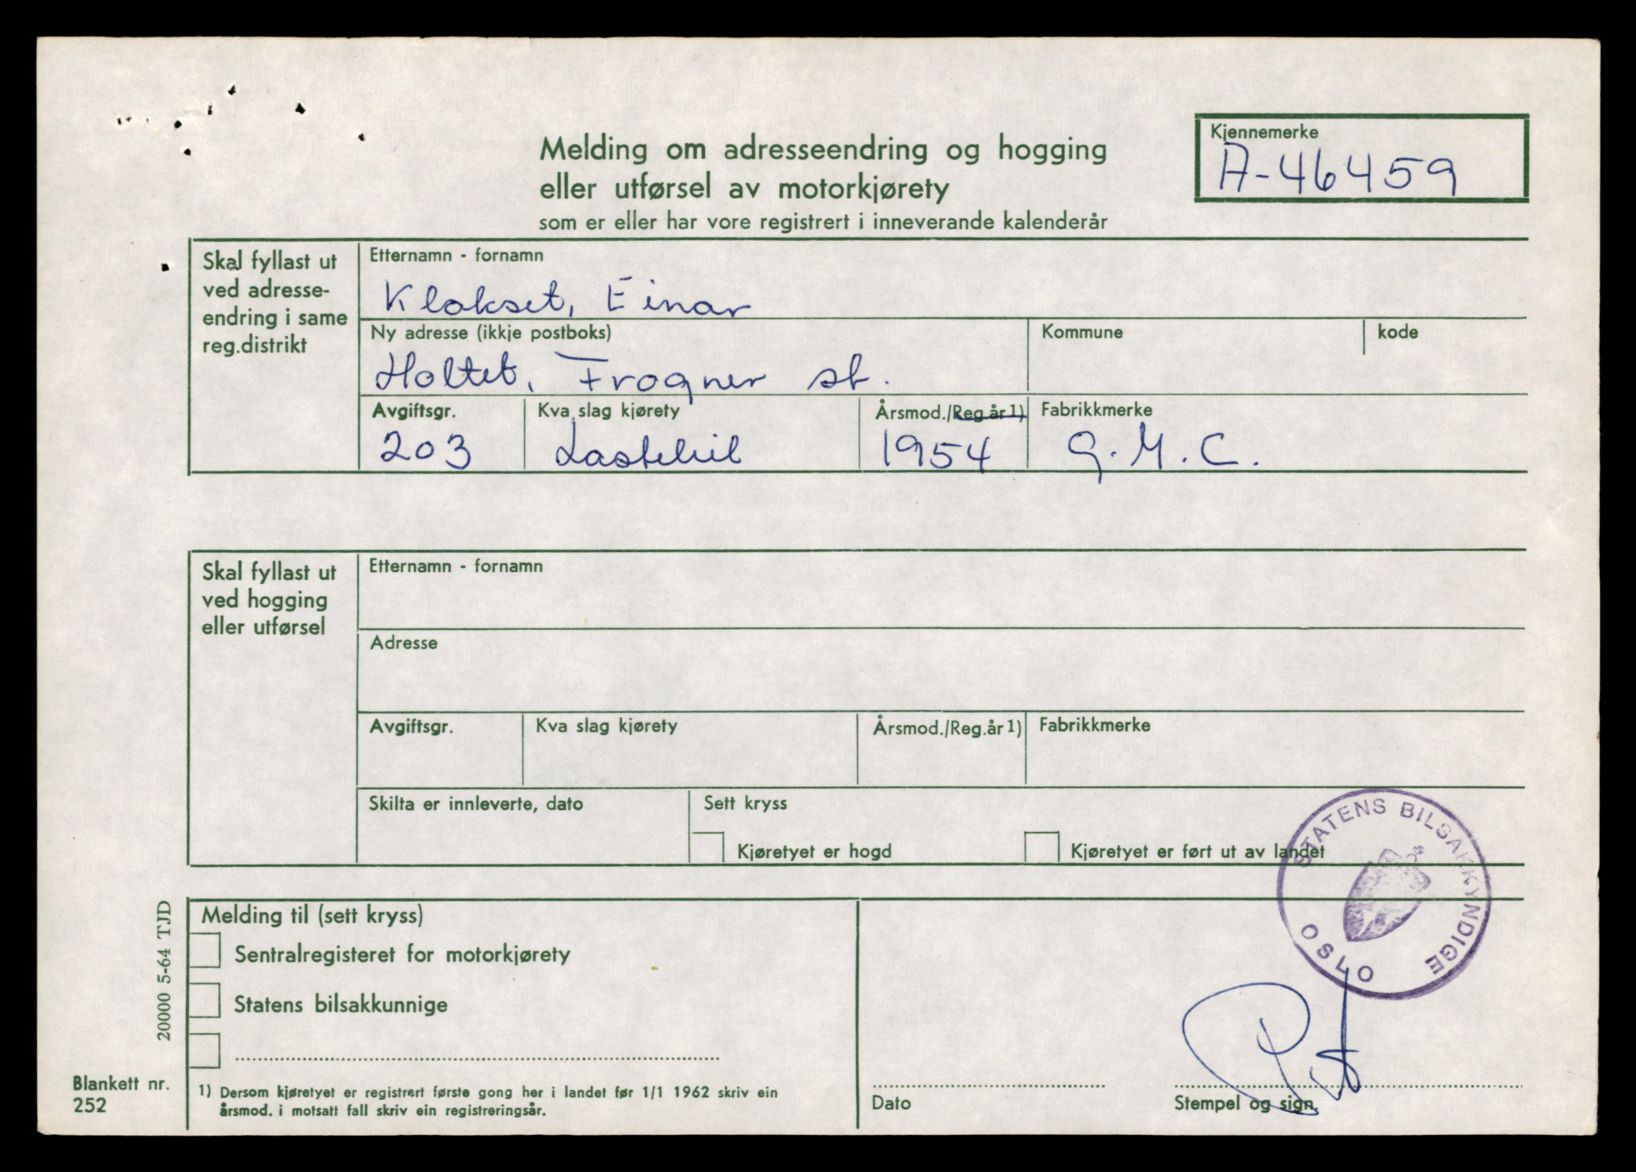 Melding om adresseendring og hogging
eller utførsel av motorkjørety
som er eller har vore registrert i inneverande kalenderår
Kjennemerke
A-46459
Skal fyllast ut
ved adresse-
endring i same
reg.distrikt
Etternamn - fornamn
Klokset, Einar
Ny adresse (ikkje postboks)
Kommune
kode
Holtet, Frogner st.
Avgiftsgr.
Kva slag kjørety
Årsmod./Reg.år 1)
Fabrikkmerke
203
Lastebil
1954
G.M.C.
Skal fyllast ut
ved hogging
eller utførsel
Etternamn - fornamn
Adresse
Avgiftsgr.
Kva slag kjørety
Årsmod./Reg.år 1)
Fabrikkmerke
Skilta er innleverte, dato
Sett kryss
Kjøretyet er hogd
Kjøretyet er ført ut av landet
STATENS BILSAKKYNDIGE
OSLO
Melding til (sett kryss)
Sentralregisteret for motorkjørety
Statens bilsakkunnige
20000 5-64 TJD
Blankett nr.
252
1) Dersom kjøretyet er registrert første gong her i landet før 1/1 1962 skriv ein
årsmod. i motsatt fall skriv ein registreringsår.
Dato
Stempel og sign.